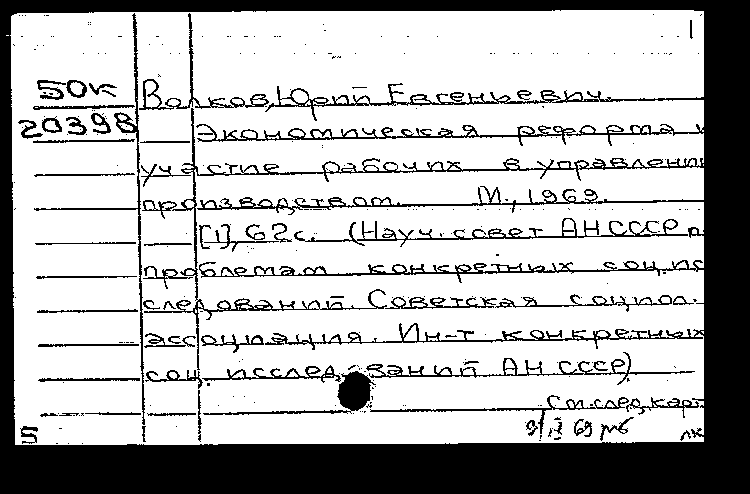 1
50к Волков, Юрий Евгеньевич.
20398 Экономическая реформа и
участие рабочих в управлении
производством. М., 1969.
[1], 62 с. (Науч. совет АН СССР п
проблемам конкретных соц. ис
следований. Советская социол.
ассоциация. Ин-т конкретных
соц. исследований АН СССР)
См. след. карт
69
лк
5